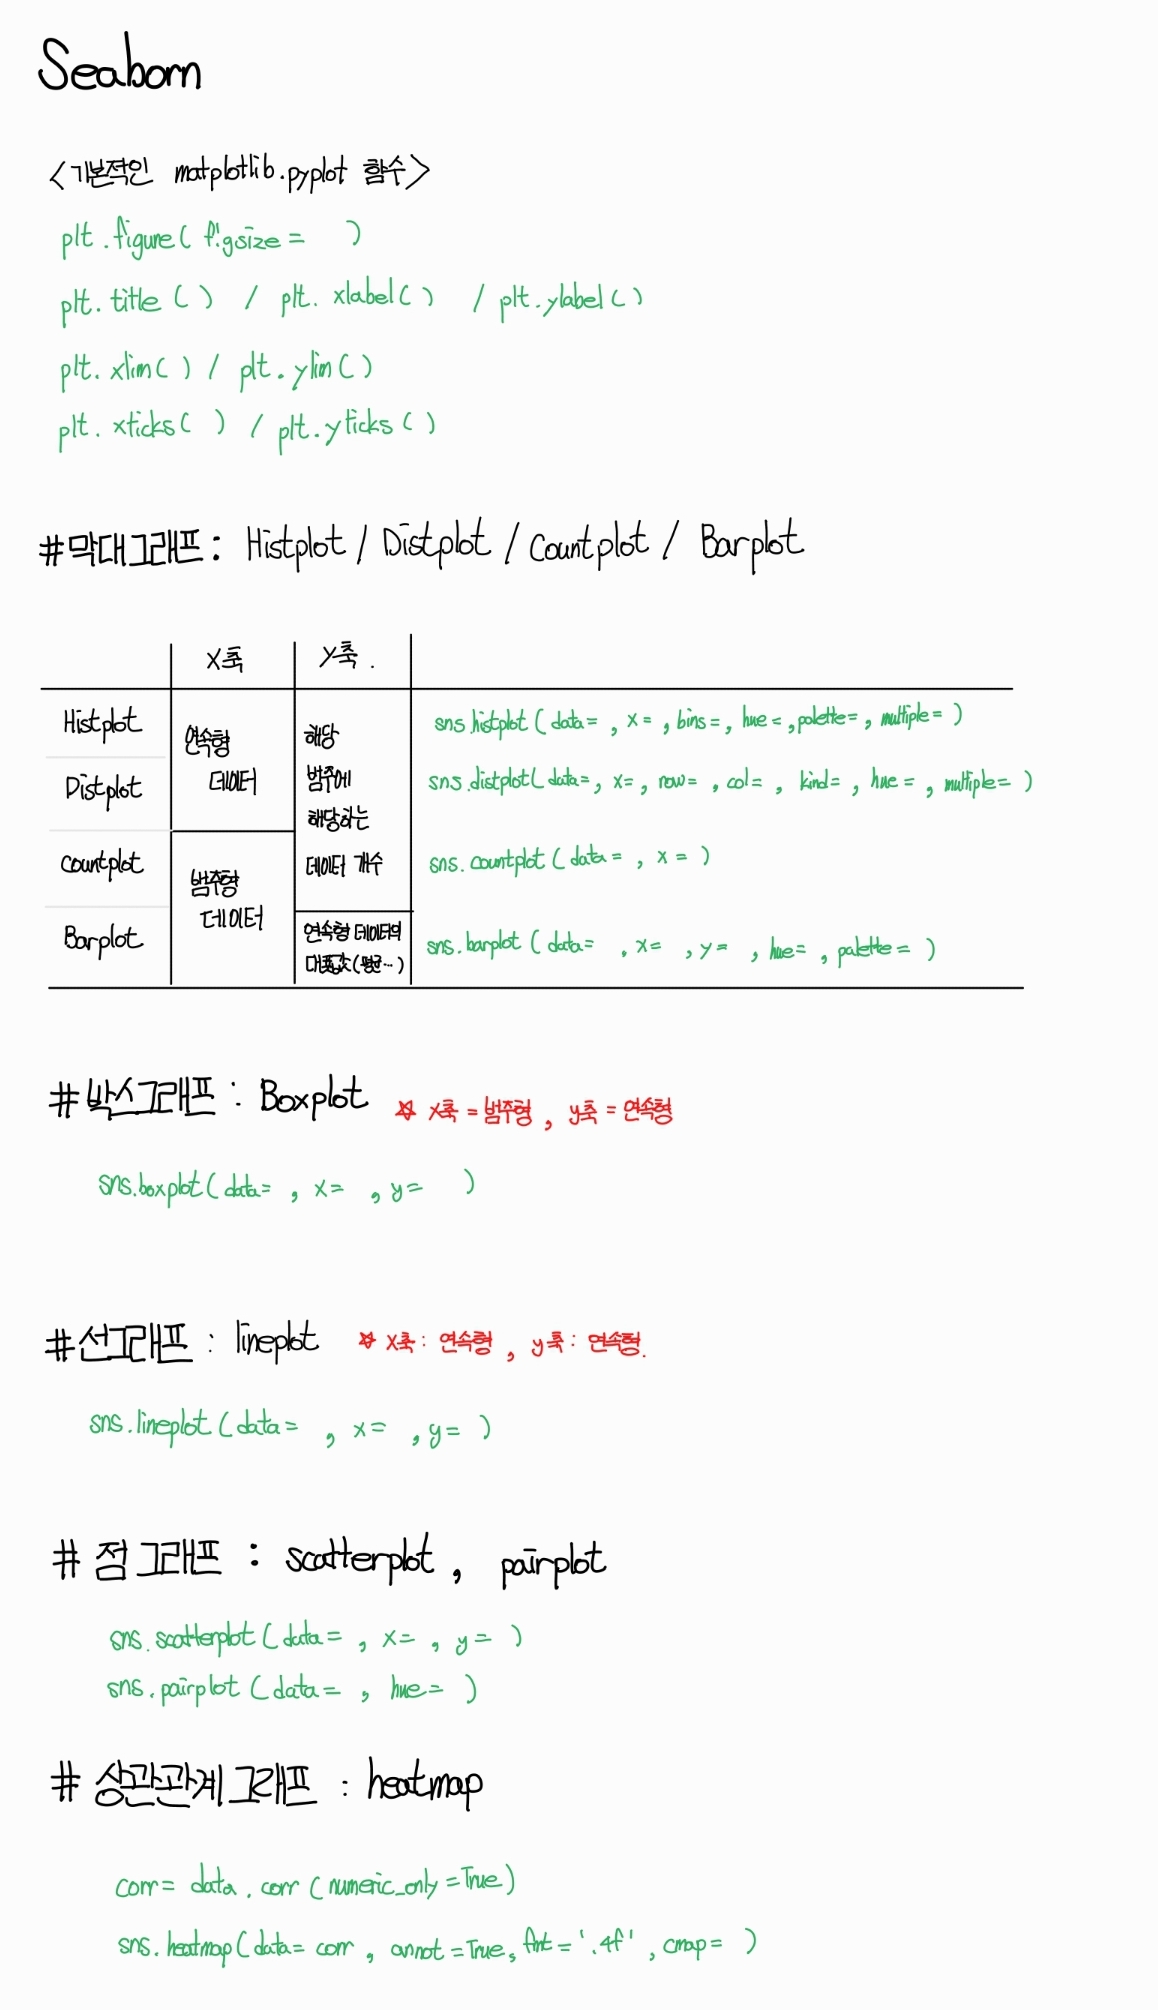 Seaborn
<기본적인 matplotlib.pyplot 함수>
plt.figure( figsize = )
plt.title ( ) / plt.xlabel( ) / plt.ylabel( )
plt.xlim( ) / plt.ylim( )
plt.xticks( ) / plt.yticks( )
#막대그래프 : Histplot / Distplot / Countplot / Barplot
X축 Y축.
Histplot
Distplot
Countplot
Barplot
연속형
데이터
범주형
데이터
해당
범주에
해당하는
데이터 개수
연속형 데이터의
대푯값(평균…)
sns.histplot ( data= , x= , bins= , hue= , palette= , multiple= )
sns.distplot( data= , x= , row= , col= , kind= , hue= , multiple= )
sns.countplot ( data= , x = )
sns.barplot ( data= , x= , y= , hue= , palette= )
#박스그래프 : Boxplot ☆ X축 = 범주형 , y축 = 연속형
sns.boxplot( data= , x= , y= )
#선그래프 : lineplot ☆ X축 : 연속형 , y축 : 연속형.
sns.lineplot ( data= , x= , y= )
# 점그래프 : scatterplot , pairplot
sns.scatterplot ( data= , x= , y= )
sns.pairplot ( data= , hue= )
# 상관관계그래프 : heatmap
corr= data.corr ( numeric_only=True )
sns.heatmap( data= corr , annot=True, fmt='.4f' , cmap= )